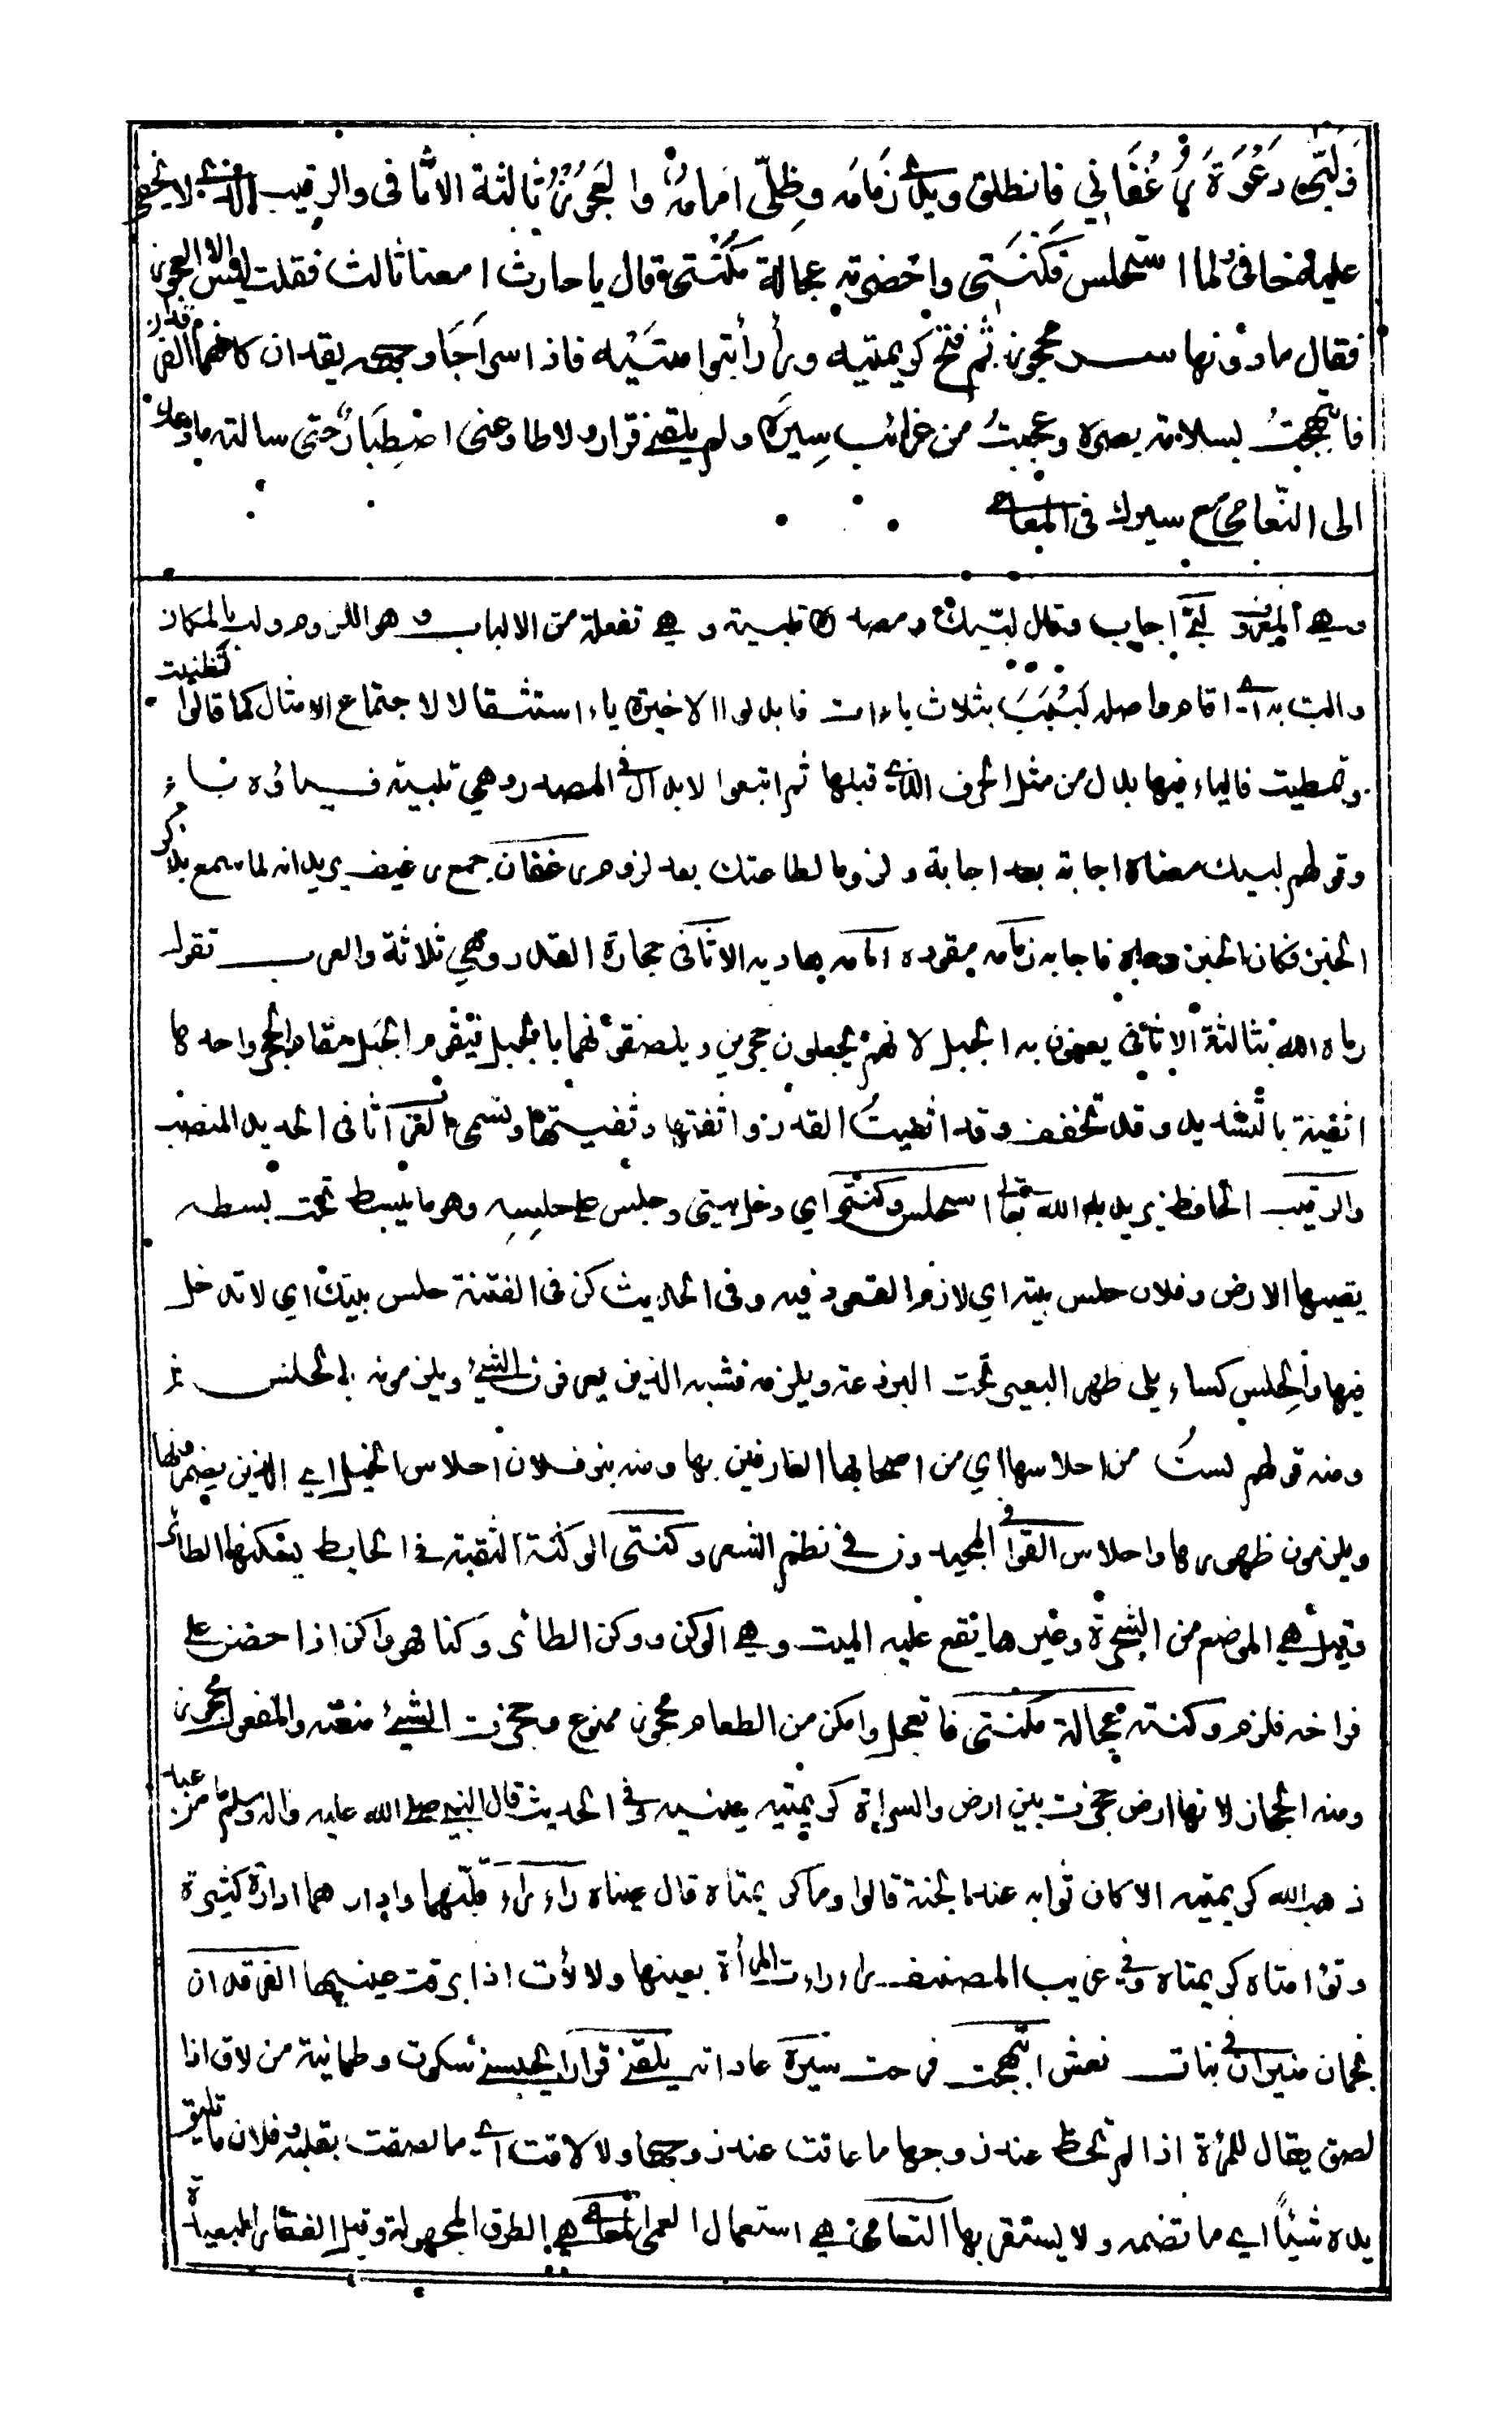 فلبّى دَعْوَةَ رُغْفَاني فانطلق ويدي زمامه وظلّي امامه والعَجُوزُ ثالثة الاثافى والرقيب الذي لا يخفى
عليه خافى فلما استحلس وُكْنَتي واحضرته عجالة مُكْنَتي قال يا حارث امعنا ثالث فقلت ليس الا العجوز
فقال ما دونها سر محجوز ثم فتح كريمتيه ورأرأ بتوأمتيه فاذا سراجا وجهه يقدان كانهما الفرقدان
فابتهجتُ بسلامة بصره وعجبتُ من غرائب سِيَرِه ولم يلقني قرار ولا طاوعني اصْطِبَارٌ حتى سالته ما دعاك
الى التّعامي مع سيرك في المعامي
اجاب وقال لبّيك ومصدره تلبية وهي تفعلة من الالباب وهو اللزوم ولب بالمكان
والب به اي اقام واصله لَبَّبَ بثلاث باءات فابدلوا الاخيرة ياء استثقالا لاجتماع الامثال كما قالوا تظنيت
وتمطيت فالياء فيها بدل من مثل الحرف الذي قبلها ثم اتبعوا الابدال في المصدر وهي تلبية
وقولهم لبيك معناه اجابة بعد اجابة ولزوما لطاعتك بعد لزوم رغفان جمع رغيف يريد انه لما سمع بذكر
الخبز فكان الخبز دعاه فاجابه زمامه مقوده امامه هاديه الاثافى حجارة القدر وهي ثلاثة والعرب تقول
رماه الله بثالثة الاثافي يعنون به الجبل لانهم يجعلون حجرين ويلصقونهما بالجبل فيقوم الجبل مقام الحجر واحدها
اثفية بالتشديد وقد تخفف وقد اثفيتُ القدر واثفتها وثفيتها وتسمى اثافى الحديد المنصب
والرقيب الحافظ يريد به الله تعالى استحلس وكنتي اي دخل بيتي وجلس على حلسه وهو ما يبسط تحت بسطه
يقيها الارض وفلان حلس بيته اي لازم القعود فيه وفي الحديث كن في الفتنة حلس بيتك اي لا تدخل
فيها والحلس كساء يلي ظهر البعير تحت البرذعة ويلزمه فشبه الذين يعرفون الشيء ويلزمونه بالحلس
ومنه قولهم لستُ من احلاسها اي من اصحابها العارفين بها ومنه بنو فلان احلاس الخيل اي الذين يضمرونها
ويلزمون ظهورها واحلاس القوافي المجيدون في نظم الشعر وكنتى الوكنة الثقبة في الحايط يتمكنها الطائر
وقيل هي الموضع من الشجرة وغيرها يقع عليه وهي الوكن ووكن الطائر وكنا فهو واكن اذا حضن على
فراخه فلزم وكنته عجالة مكنتى ما تعجل وامكن من الطعام محجوز ممنوع وحجزت الشيء منعته والمفعول محجوز
ومنه الحجاز لانها ارض حجزت بين ارض والسراة كريمتيه عينيه وفي الحديث قال النبي صلى الله عليه واله وسلم ما من عبد
ذهب الله كريمتيه الا كان ثوابه عند الجنة قالوا وما كريمتاه قال عيناه رأرأ قلّبهما وادارهما ادارة كثيرة
وتوأمتاه كريمتاه وفي غريب المصنف رأرأت المرأة بعينها ولألأت اذا برقت عينيها الفرقدان
نجمان منيران في بنات نعش ابتهجت فرحت سيره عاداته يلقني قرار يحبسني سكون وطمانينة من لاق اذا
لصق يقال للمرأة اذا لم تحظ عند زوجها ما عاقت عند زوجها ولا لاقت اي ما لصقت بقلبه وفلان ما تليق
يده شيئاً اي ما تضمه ولا يستقر بها التعامي هي استعمال العمى المعامي هي الطرق المجهولة وقيل القفار البعيدة